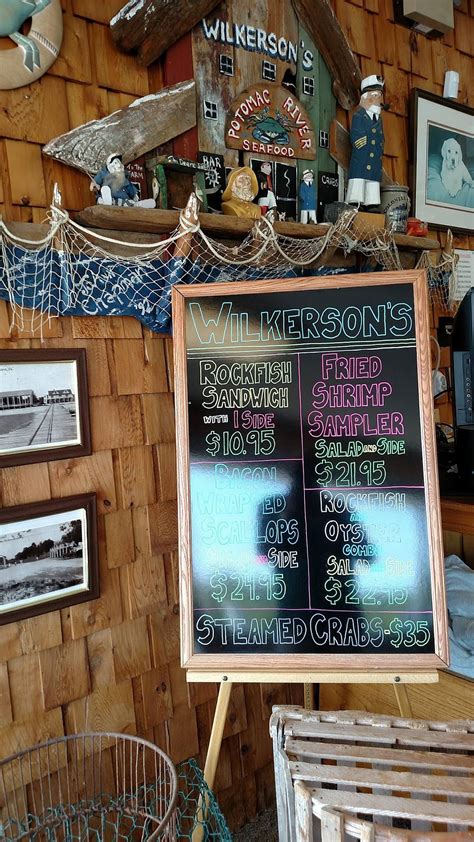 WILKERSON'S
POTOMAC RIVER
SEAFOOD
BAR
WILKERSON'S
ROCKFISH
SANDWICH
WITH 1 SIDE
$10.95
FRIED
SHRIMP
SAMPLER
SALAD AND SIDE
$21.95
BACON
WRAPPED
SCALLOPS
SALAD AND SIDE
$24.95
ROCKFISH
AND
OYSTER
COMBO
SALAD AND SIDE
$22.95
STEAMED CRABS-$35